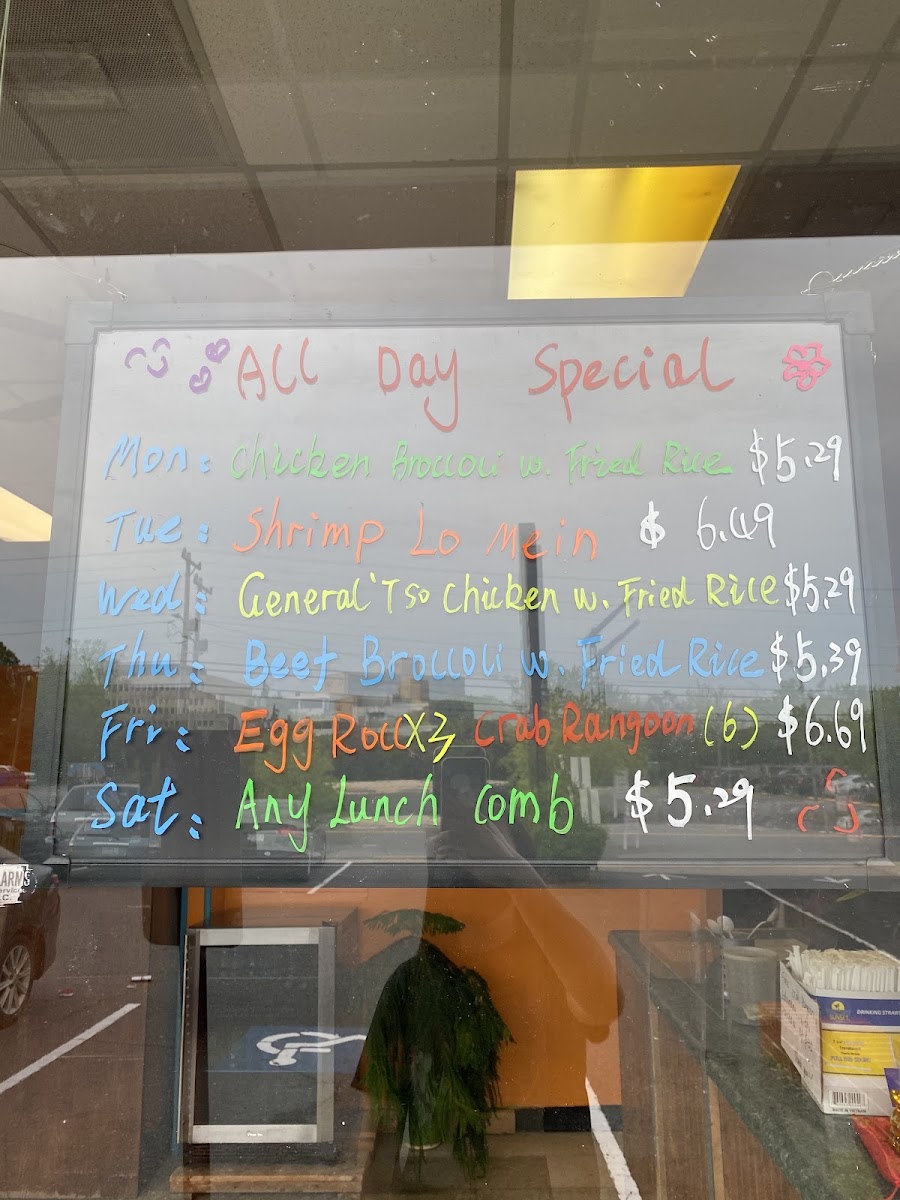 All Day Special
Mon: Chicken Broccoli w. Fried Rice $5.29
Tue: Shrimp Lo Mein $ 6.49
Wed: General'Tso Chicken w. Fried Rice $5.29
Thu: Beef Broccoli w. Fried Rice $5.39
Fri: Egg RollX3, Crab Rangoon (6) $6.69
Sat: Any Lunch Comb $5.29
DRINKING STRAWS
MADE IN VIETNAM